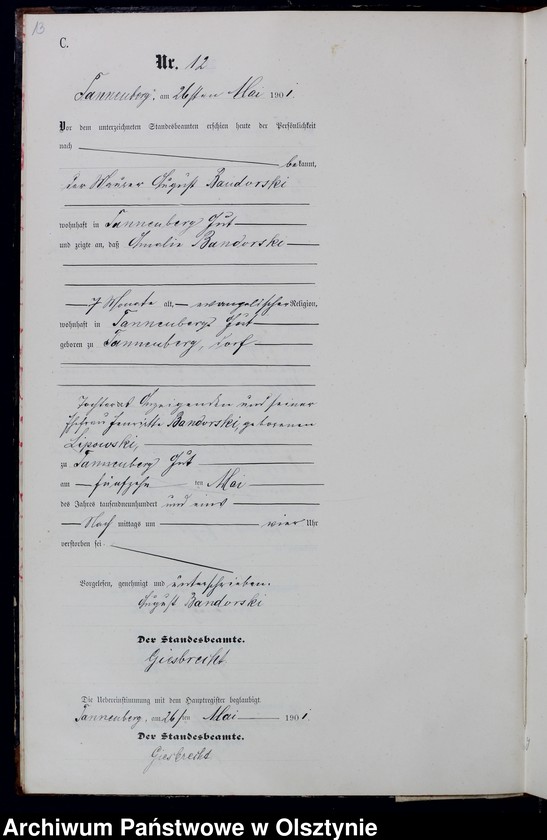 13
C.
Nr. 12
Tannenberg, am 26sten Mai 1901.
Vor dem unterzeichneten Standesbeamten erschien heute der Persönlichkeit
nach
bekannt,
der August Bandorski
wohnhaft in Tannenberg Gut
und zeigte an, daß Amalie Bandorski
7 Monate alt, evangelischer Religion,
wohnhaft in Tannenberg Gut
geboren zu Tannenberg, Dorf
Tochter des Anzeigenden und seiner
Ehefrau Henriette Bandorski, geborenen
Lipowski,
zu Tannenberg Gut
am fünfzehn ten Mai
des Jahres tausendneunhundert und eins
Nach mittags um vier Uhr
verstorben sei
Vorgelesen, genehmigt und unterschrieben.
August Bandorski
Der Standesbeamte.
Giesbrecht
Die Uebereinstimmung mit dem Hauptregister beglaubigt.
Tannenberg, am 26sten Mai 1901.
Der Standesbeamte.
Giesbrecht
Archiwum Państwowe w Olsztynie